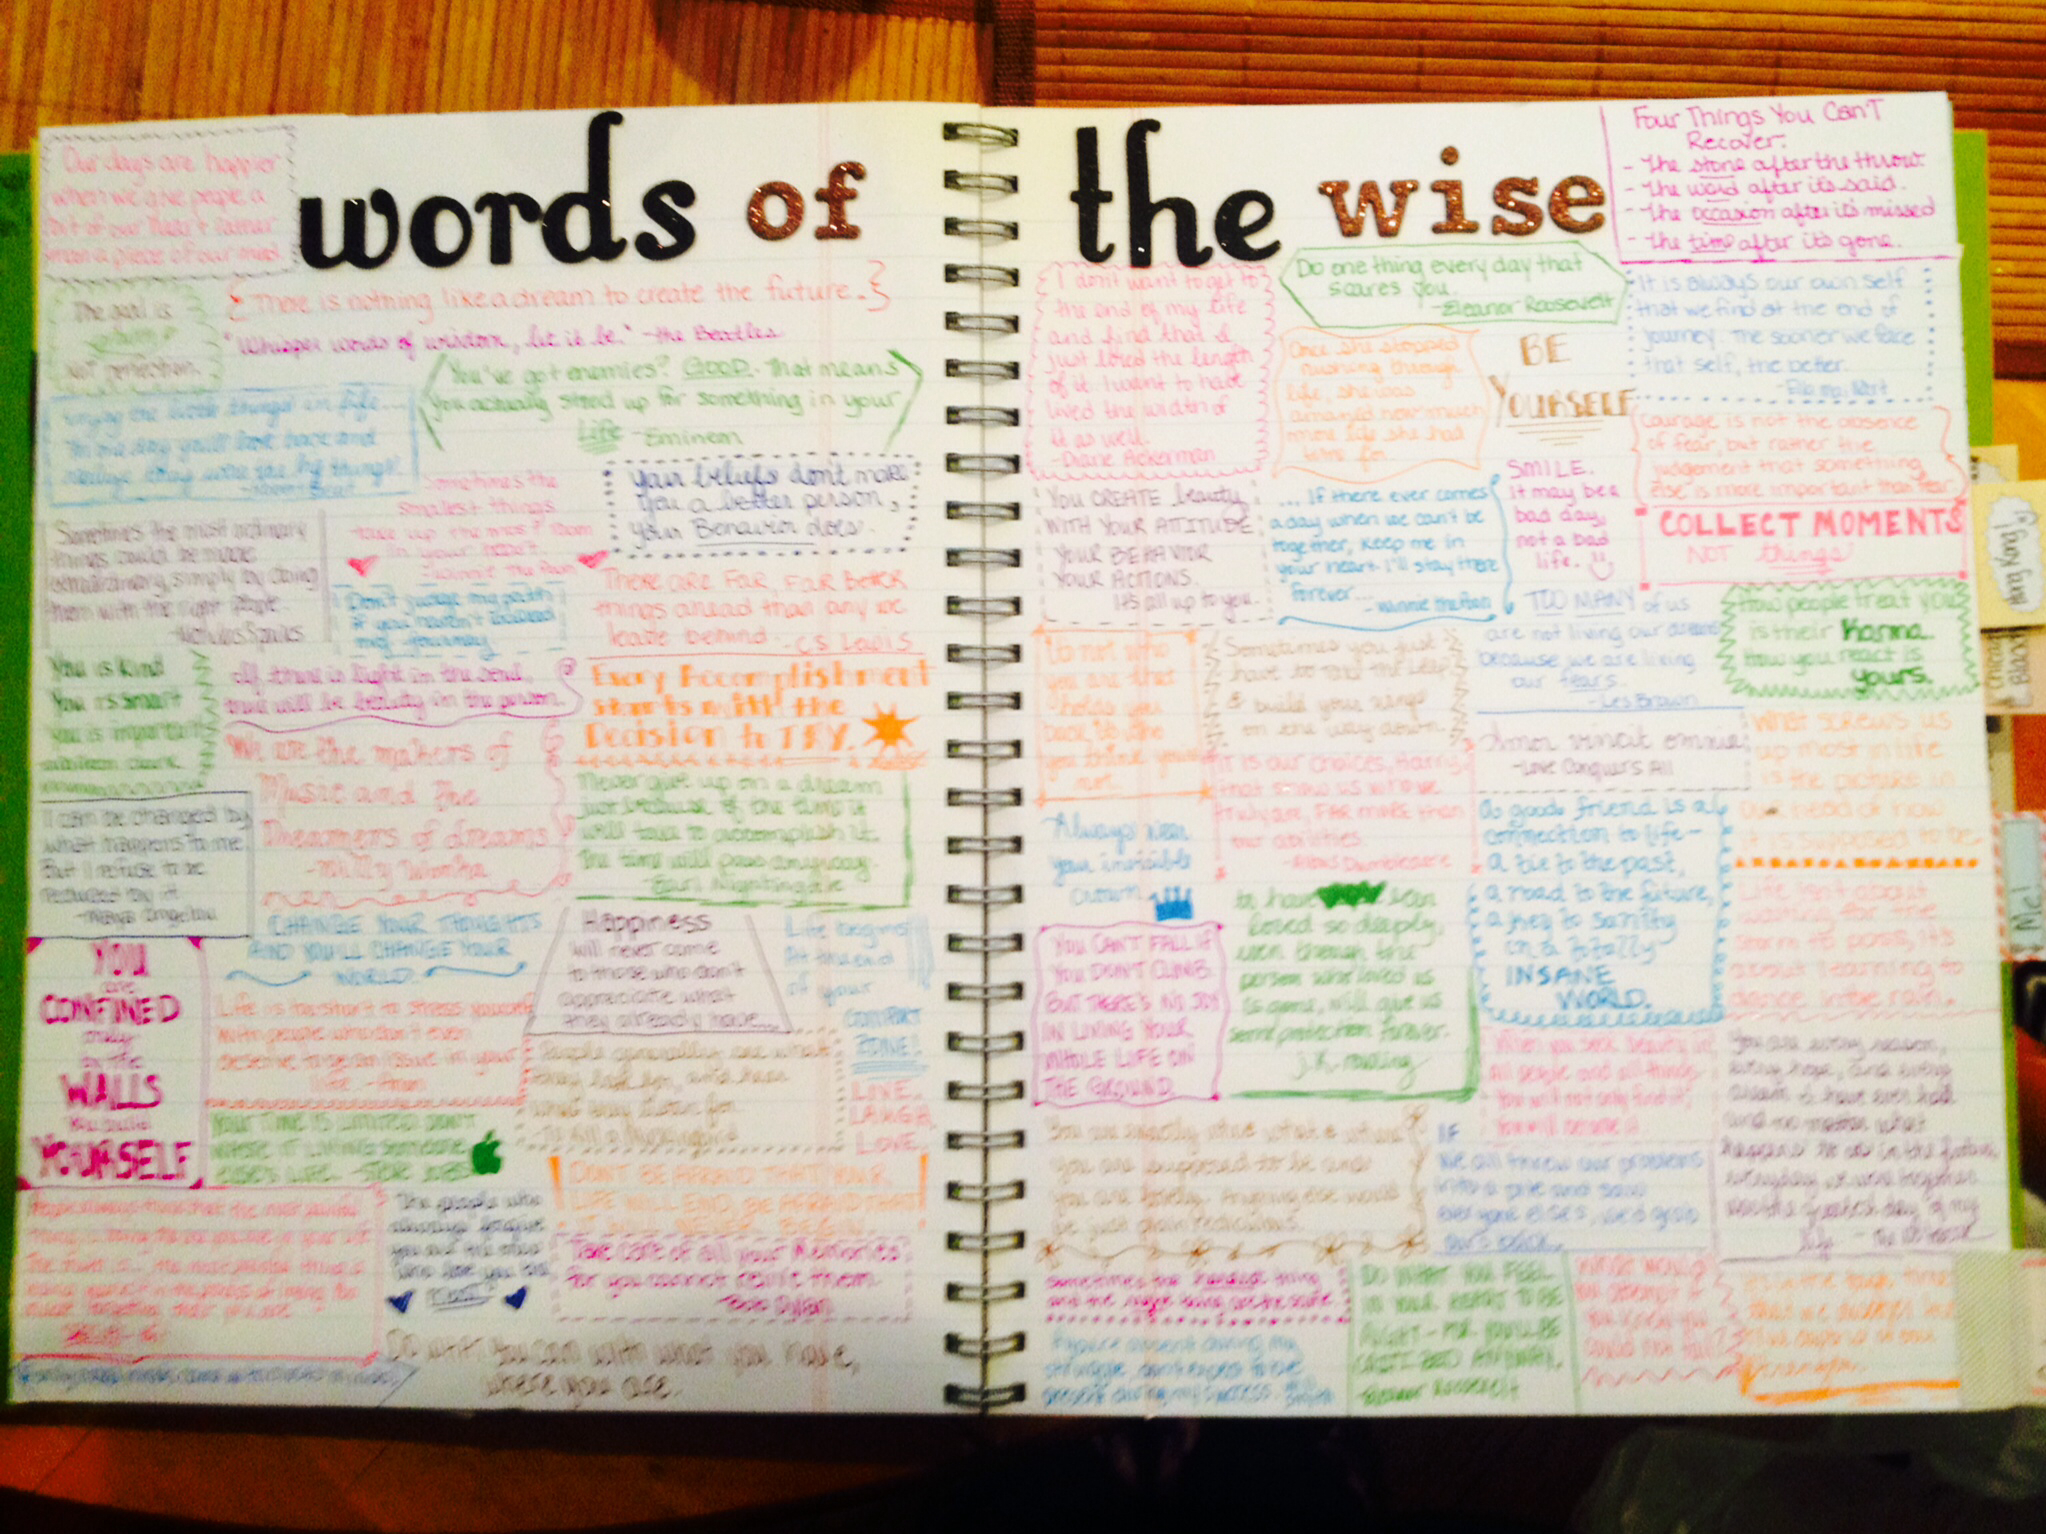 words of the wise
Our days are happier
when we give people a
bit of our heart rather
than a piece of our mind.
There is nothing like a dream to create the future.
"Whisper words of wisdom, let it be." -the Beatles
The goal is
NOT perfection.
You've got enemies? GOOD. That means
you actually stood up for something in your
Life -Eminem
Enjoy the little things in life...
for one day you'll look back and
realize they were the big things.
Sometimes the
smallest things
take up the most room
in your heart.
-Winnie the Pooh
Your beliefs don't make
you a better person,
your Behavior does.
Sometimes the most ordinary
things could be made
extraordinary, simply by doing
them with the right people.
-Nicholas Sparks
Don't judge my path
if you haven't
my journey
THERE ARE FAR, FAR BETTER
things ahead than any we
leave behind. -CS Lewis
You is kind
You is smart
You is important
If there is light in the soul,
there will be beauty in the person.
Every Accomplishment
starts with the
Decision to TRY.
We are the makers of
Music and the
Dreamers of dreams
-Willy Wonka
Never give up on a dream
just because of the time it
will take to accomplish it.
The time will pass anyway.
-Earl Nightingale
I can be changed by
what happens to me
But I refuse to be
reduced by it
-Maya Angelou
CHANGE YOUR THOUGHTS
AND YOU'LL CHANGE YOUR
WORLD.
Happiness
will never come
to those who don't
appreciate what
they already have...
Life begins
At the end
of your
COMFORT
ZONE!
YOU
are
CONFINED
only
by the
WALLS
you build
YOURSELF
Life is too short to stress yourself
with people who don't even
deserve to be an issue in your
life. -Anon
People generally see what
they look for, and hear
what they listen for
-To Kill a Mockingbird
LIVE.
LAUGH.
LOVE.
YOUR TIME IS LIMITED DON'T
WASTE IT LIVING someone
ELSE'S LIFE. -STEVE JOBS
DON'T BE AFRAID THAT YOUR
LIFE WILL END, BE AFRAID THAT
IT WILL NEVER BEGIN.
The people who
Take care of all your Memories
for you cannot relive them.
-Bob Dylan
Do what you can with what you have,
where you are.
Four Things You Can't
Recover:
- The stone after the throw.
- The word after it's said.
- The occasion after it's missed
- The time after it's gone.
I don't want to get to
the end of my life
and find that I
just lived the length
of it. I want to have
lived the width of
it as well.
-Diane Ackerman
Do one thing every day that
scares you.
-Eleanor Roosevelt
It is always our own self
that we find at the end of
journey. The sooner we face
that self, the better.
Once she stopped
rushing through
life, she was
amazed how much
more life she had
time for.
BE
YOURSELF
Courage is not the absence
of fear, but rather the
judgement that something
else is more important than fear
YOU CREATE beauty
WITH YOUR ATTITUDE
YOUR BEHAVIOR
YOUR ACTIONS.
It's all up to you.
... If there ever comes
a day when we can't be
together, keep me in
your heart. I'll stay there
forever...
-Winnie the Pooh
SMILE.
it may be a
bad day,
not a bad
life.
COLLECT MOMENTS
NOT things
TOO MANY of us
are not living our dreams
because we are living
our fears.
-Les Brown
How people treat you
is their Karma.
How you react is
yours.
It's not who
you are that
holds you
back it's who
you think you're
not.
Sometimes you just
have to take the leap
& build your wings
on the way down.
Amor vincit omnia
-Love Conquers All
What screws us
up most in life
is the picture in
our head of how
it is supposed to be.
It is our choices, Harry,
that show us who we
truly are, FAR more than
our abilities.
-Albus Dumbledore
Always wear
your invisible
crown
A good friend is a
connection to life-
a tie to the past,
a road to the future,
a key to sanity
in a totally
INSANE
WORLD.
Life isn't about
waiting for the
storm to pass, it's
about learning to
dance in the rain.
YOU CAN'T FALL IF
YOU DON'T CLIMB.
BUT THERE'S NO JOY
IN LIVING YOUR
WHOLE LIFE ON
THE GROUND.
to have been
loved so deeply,
even though the
person who loved us
is gone, will give us
some protection forever.
j.k. rowling
When you seek beauty in
all people and all things
You will not only find it,
You will become it
You are every reason,
every hope, and every
dream I have ever had
and no matter what
happens to us in the future,
everyday we are together
is the greatest day of my
life -The Notebook
IF
We all threw our problems
into a pile and saw
everyone else's, we'd grab
ours back.
Sometimes the hardest thing
and the right thing are the same.
DO WHAT YOU FEEL
IN YOUR HEART TO BE
RIGHT - FOR YOU'LL BE
CRITICIZED ANYWAY.
-Eleanor Roosevelt
WHAT WOULD
YOU attempt if
you knew you
could not fail?
Hong Kong
Me!